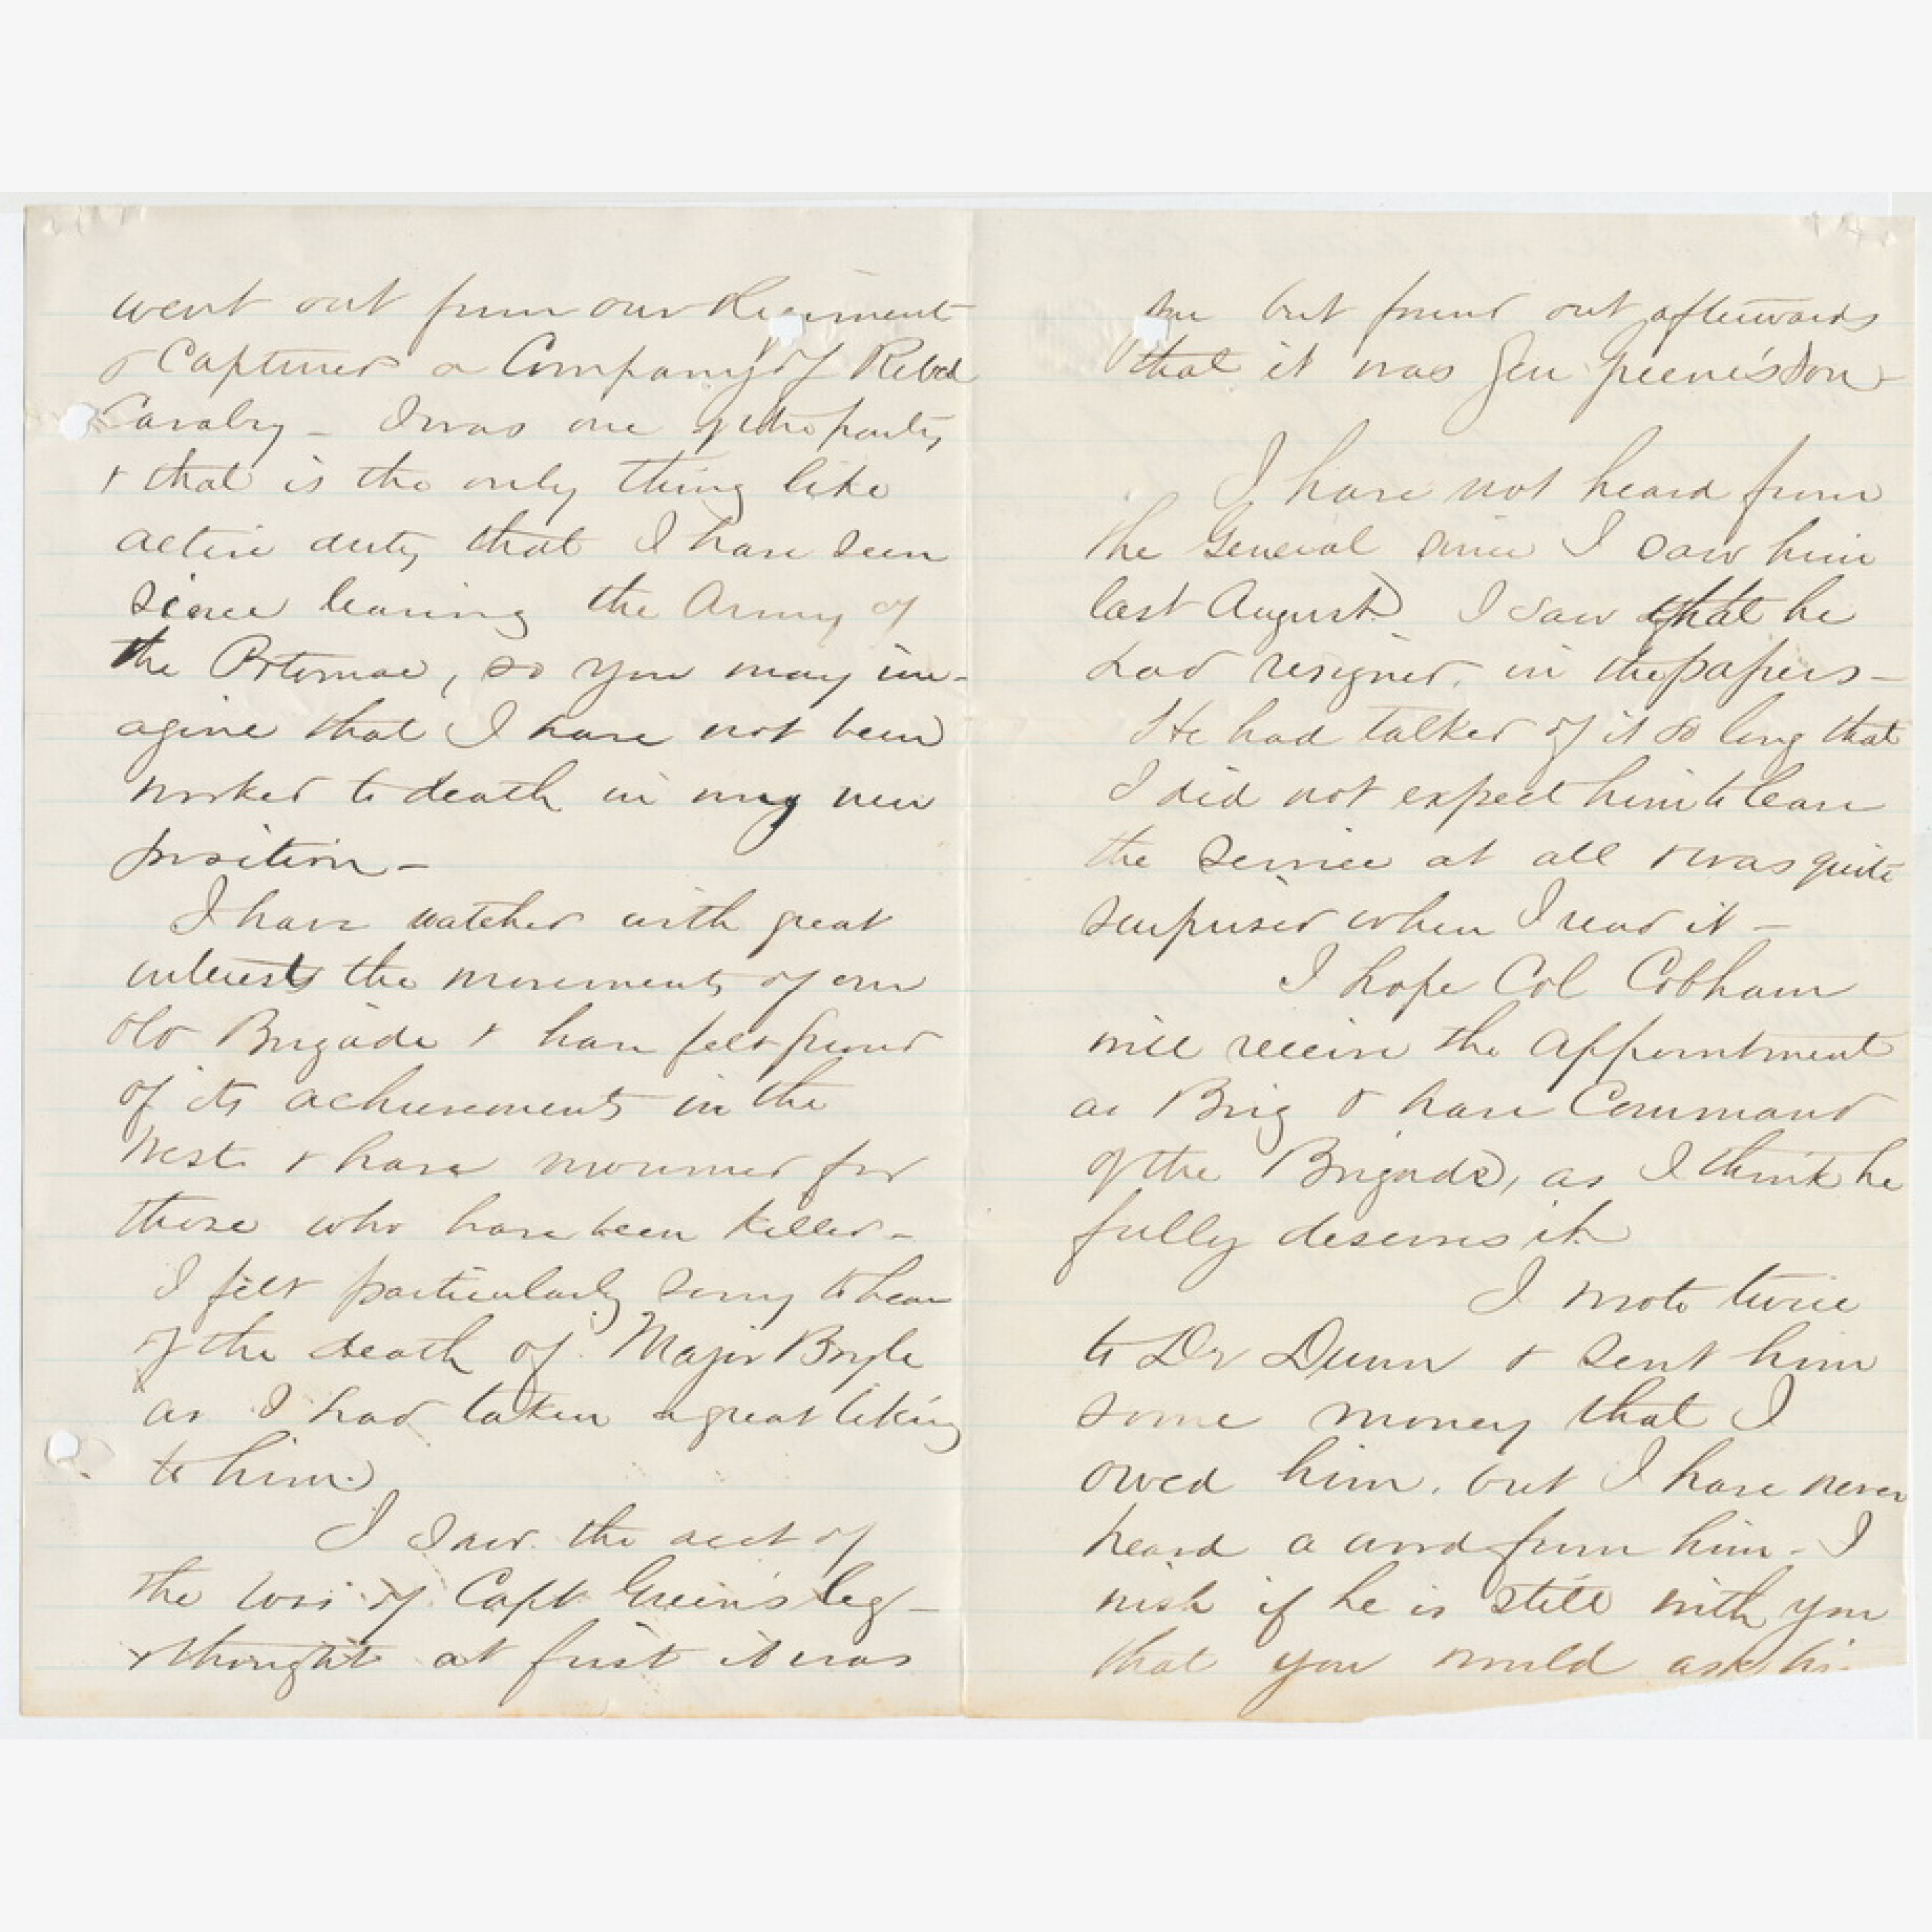 went out from our Regiment
& Captured a Company of Rebel
Cavalry – I was one of the party,
& that is the only thing like
active duty that I have seen
since leaving the Army of
the Potomac, so you may im-
agine that I have not been
worked to death in my new
position –
I have watched with great
interests the movements of our
old Brigade & have felt proud
of its achievements in the
West & have mourned for
those who have been killed –
I felt particularly sorry to hear
of the death of Major Boyle
as I had taken a great liking
to him.
I saw the acct of
the loss of Capt Green's leg –
& thought at first it was
but found out afterwards
that it was Gen Greene's Son –
I have not heard from
the General since I saw him
last August. I saw that he
had resigned, in the papers –
He had talked of it so long that
I did not expect him to leave
the service at all & was quite
surprised when I read it –
I hope Col Cobham
will receive the appointment
as Brig & have Command
of the Brigade, as I think he
fully deserves it.
I wrote twice
to Dr Dunn & sent him
some money that I
owed him, but I have never
heard a word from him – I
wish if he is still with you
that you would ask